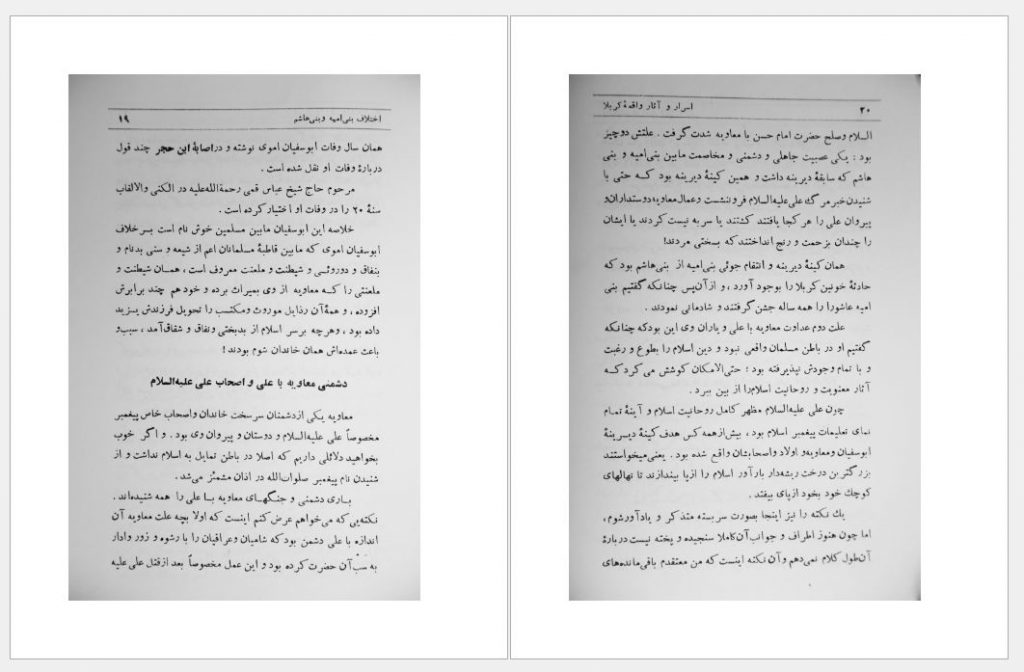 اختلاف بنی‌امیه و بنی‌هاشم ۱۹
همان سال وفات ابوسفیان اموی نوشته و در اصابهٔ ابن حجر چند قول
دربارهٔ وفات او نقل شده است .
مرحوم حاج شیخ عباس قمی رحمة‌الله‌علیه در الکنی والالقاب
سنهٔ ۲۰ را در وفات او اختیار کرده است .
خلاصه این ابوسفیان مابین مسلمین خوش نام است بسر خلاف
ابوسفیان اموی که مابین قاطبهٔ مسلمانان اعم از شیعه و سنی بدنام و
بنفاق و دوروئی و شیطنت و ملعنت معروف است ، همان شیطنت و
ملعنتی را که معاویه از وی بمیراث برده و خود هم چند برابرش
افزوده ، و همهٔ آن رذایل موروث و مکتسب را تحویل فرزندش یزید
داده بود ، وهرچه برسر اسلام از بدبختی ونفاق و شقاق آمد ، سبب و
باعث عمده‌اش همان خاندان شوم بودند !
دشمنی معاویه با علی و اصحاب علی علیه‌السلام
معاویه یکی ازدشمنان سرسخت خاندان واصحاب خاص پیغمبر
مخصوصاً علی علیه‌السلام و دوستان و پیروان وی بود . و اگر خوب
بخواهید دلائلی داریم که اصلا در باطن تمایل به اسلام نداشت و از
شنیدن نام پیغمبر صلوات‌الله در اذان مشمئز می‌شد .
باری دشمنی و جنگهای معاویه با علی را همه شنیده‌اند .
نکته‌یی که می‌خواهم عرض کنم اینست که اولا بچه علت معاویه آن
اندازه با علی دشمن بود که شامیان وعراقیان را با رشوه و زور وادار
به سبّ آن حضرت کرده بود و این عمل مخصوصاً بعد ازقتل علی علیه
۲۰ اسرار و آثار واقعهٔ کربلا
السلام وصلح حضرت امام حسن با معاویه شدت گرفت . علتش دوچیز
بود : یکی عصبیت جاهلی و دشمنی و مخاصمت مابین بنی‌امیه و بنی
هاشم که سابقهٔ دیرینه داشت و همین کینهٔ دیرینه بود که حتی با
شنیدن خبر مرگ علی علیه‌السلام فروننشست وعمال معاویه دوستداران و
پیروان علی را هر کجا یافتند کشتند یا سر به نیست کردند یا ایشان
را چندان بزحمت و رنج انداختند که بسختی مردند!
همان کینهٔ دیرینه و انتقام جوئی بنی‌امیه از بنی‌هاشم بود که
حادثهٔ خونین کربلا را بوجود آورد ، و ازآن‌پس چنانکه گفتیم بنی
امیه عاشورا را همه ساله جشن گرفتند و شادمانی نمودند .
علت دوم عداوت معاویه با علی و یاران وی این بود که چنانکه
گفتیم او در باطن مسلمان واقعی نبود و دین اسلام را بطوع و رغبت
و با تمام وجودش نپذیرفته بود : حتی‌الامکان کوشش می‌کرد که
آثار معنویت و روحانیت اسلام را از بین ببرد .
چون علی علیه‌السلام مظهر کامل روحانیت اسلام و آینهٔ تمام
نمای تعلیمات پیغمبر اسلام بود ، بیش‌ازهمه کس هدف کینهٔ دیرینهٔ
ابوسفیان ومعاویه‌و اولاد واصحابشان واقع شده بود . یعنی‌میخواستند
بزرگترین درخت ریشه‌دار بارآور اسلام را ازپا بیندازند تا نهالهای
کوچك خود بخود ازپای بیفتد .
یك نکته را نیز اینجا بصورت سر بسته متذکر و یادآورشوم ،
اما چون هنوز اطراف و جوانب آن کاملا سنجیده و پخته نیست دربارهٔ
آن‌طول کلام نمی‌دهم و آن نکته اینست که من معتقدم باقی‌مانده‌های